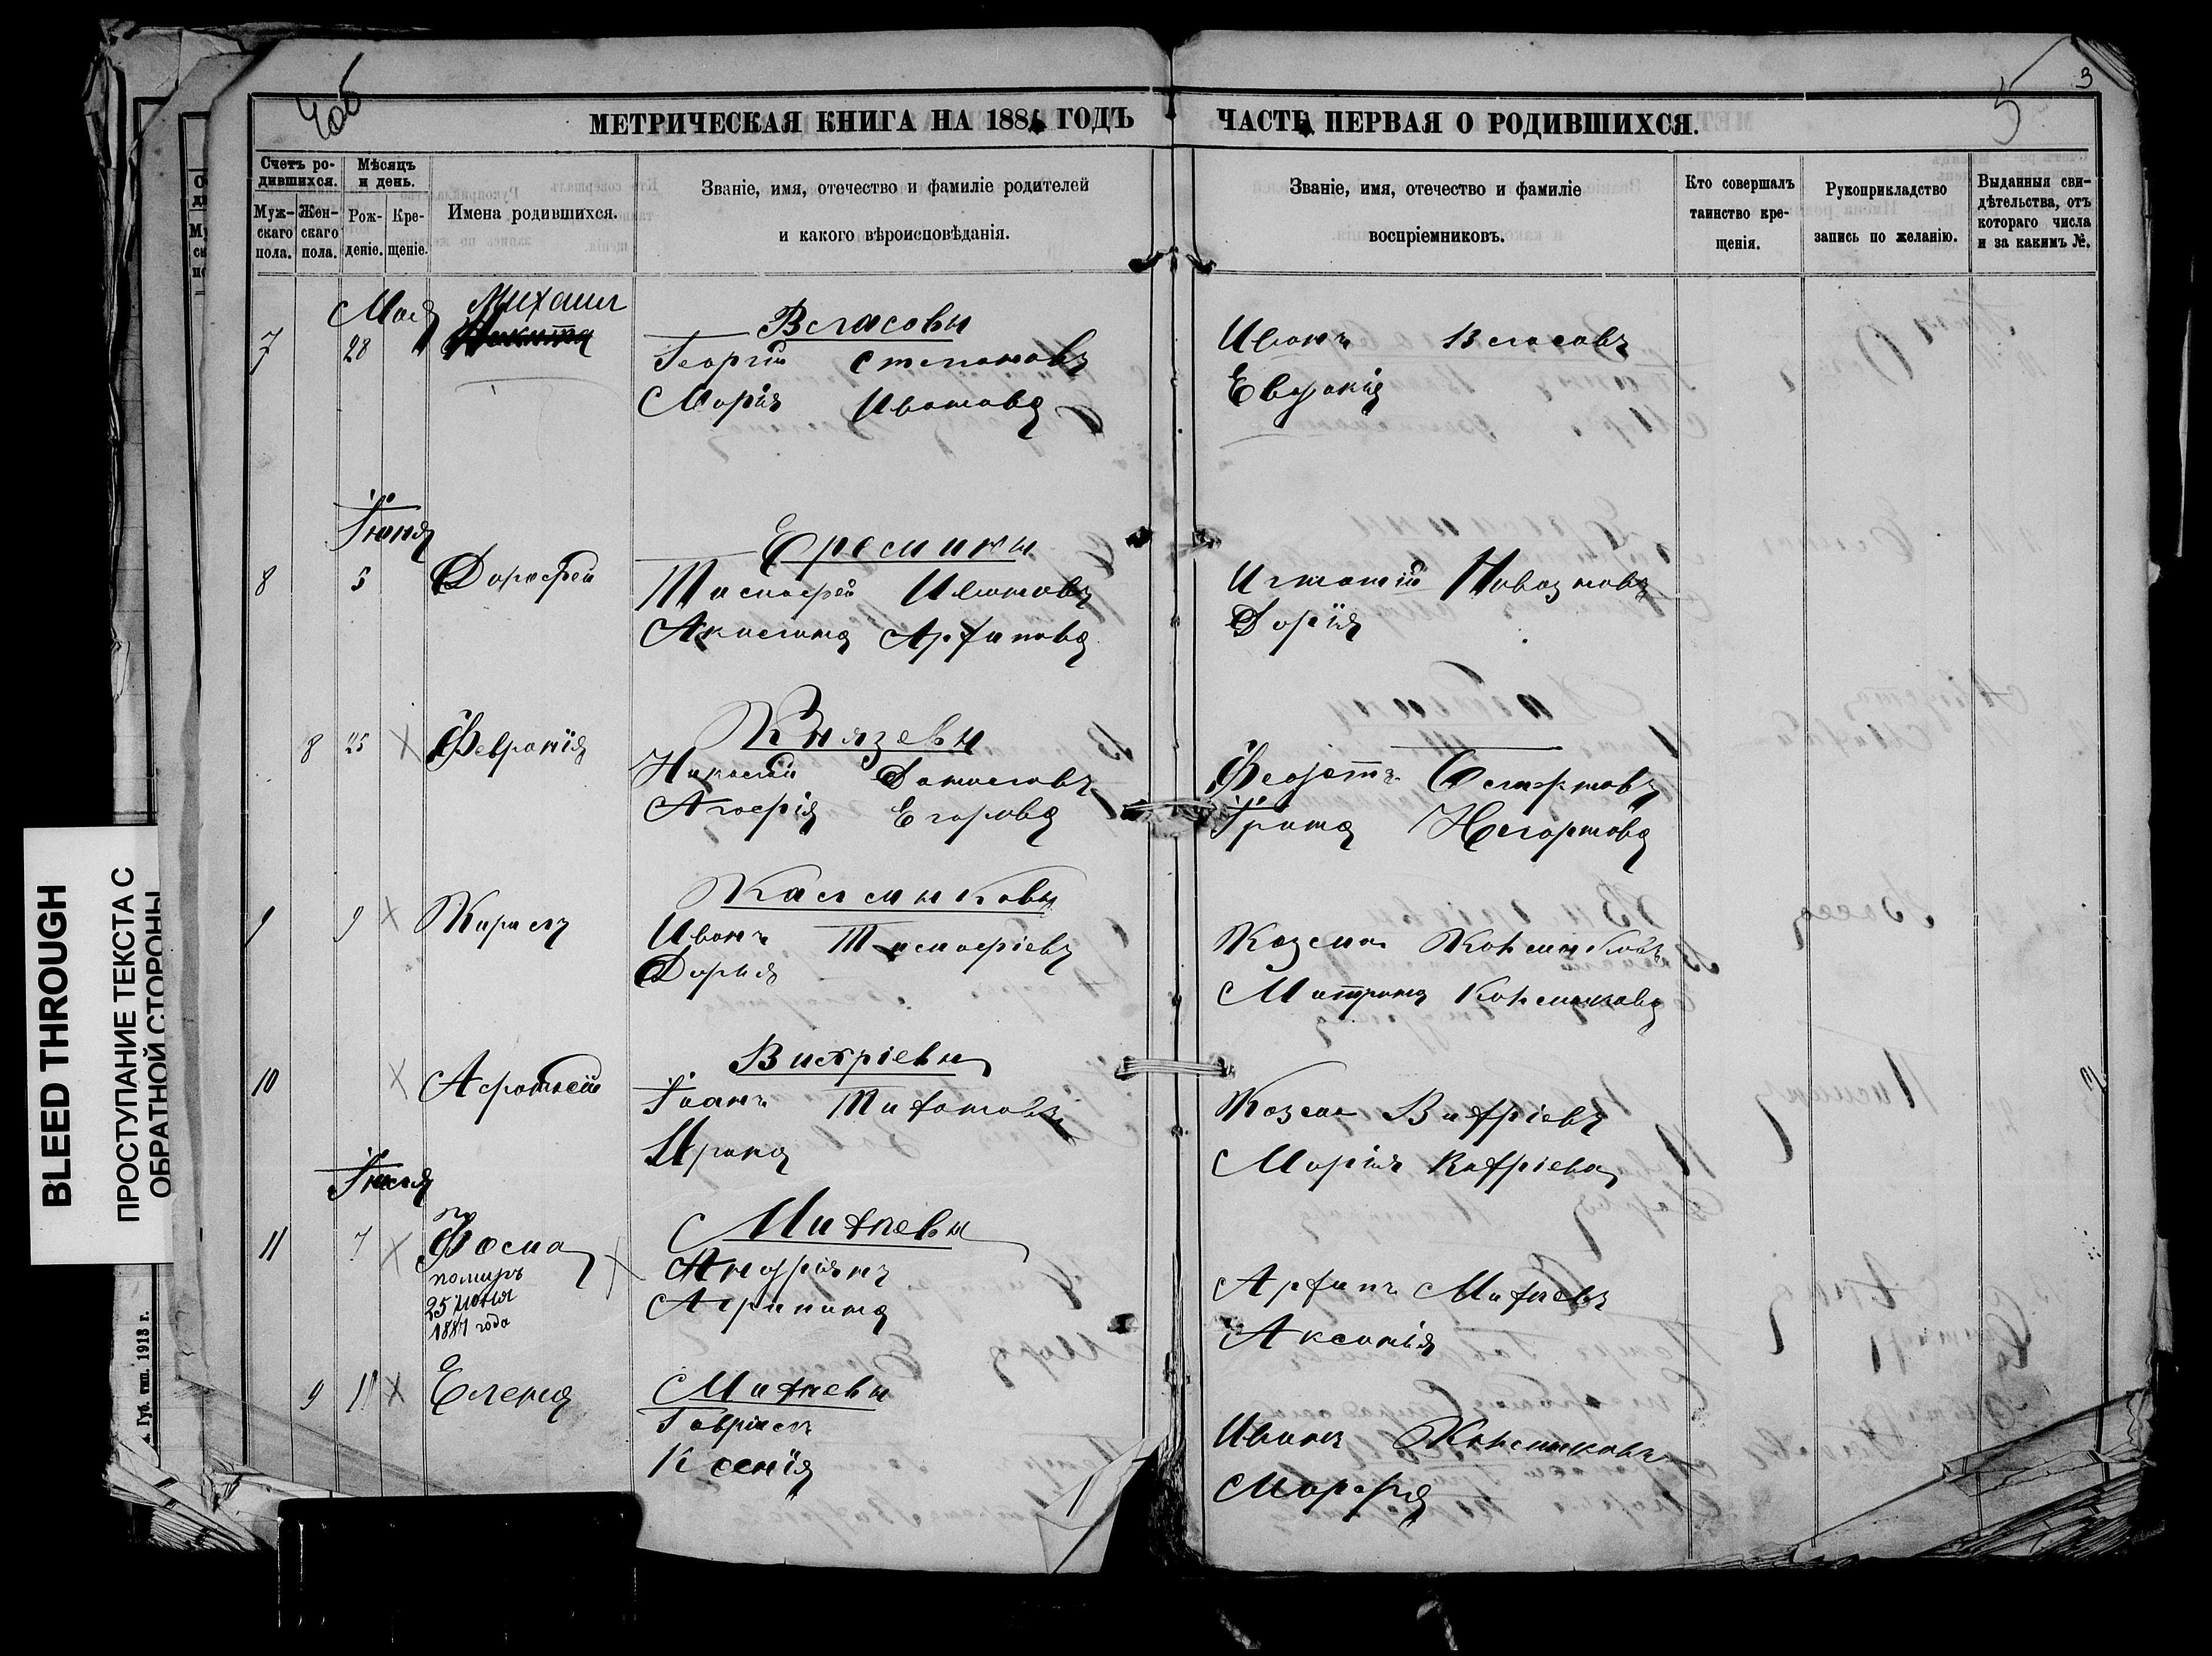 4об
5
3
МЕТРИЧЕСКАЯ КНИГА НА 1881 ГОДЪ
ЧАСТЬ ПЕРВАЯ О РОДИВШИХСЯ.
Счетъ ро-
дившихся.
Муж-
скаго
пола.
Жен-
скаго
пола.
Мѣсяцъ
и день.
Рож-
деніе.
Кре-
щеніе.
Имена родившихся.
Званіе, имя, отечество и фамиліе родителей
и какого вѣроисповѣданія.
Званіе, имя, отечество и фамиліе
воспріемниковъ.
Кто совершалъ
таинство кре-
щенія.
Рукоприкладство
запись по желанію.
Выданныя сви-
дѣтельства, отъ
котораго числа
и за какимъ №.
Мая
7
28
Михаил
Власовы
Георгій Степановъ
Марія Иванова
Иванъ Власовъ
Евдокія
Іюня
8
5
Дорофей
Еремины
Тимофей Ивановъ
Акилина Архипова
Игнатій
Дарія
8
25
Февронія
Князевы
Николай Даниловъ
Агафія Егорова
Феодотъ
Ірина
9
9
Кирилъ
Калмыковы
Иванъ Тимофіевъ
Дарья
Козма Калмыковъ
Матрона Калмыкова
10
Вихріевы
Іоанъ Титовъ
Ирина
Козма Вихріевъ
Марія Вихріева
Іюля
11
7
Фома
помиръ
25 июня
1887 года
Михѣевы
Андріянъ
Агрипина
Архипъ Михѣевъ
Аксинія
9
11
Елена
Михѣевы
Гавріилъ
Ксенія
Иванъ Калмыковъ
Марфа
BLEED THROUGH
ПРОСТУПАНИЕ ТЕКСТА С
ОБРАТНОЙ СТОРОНЫ
Губ. тип. 1913 г.